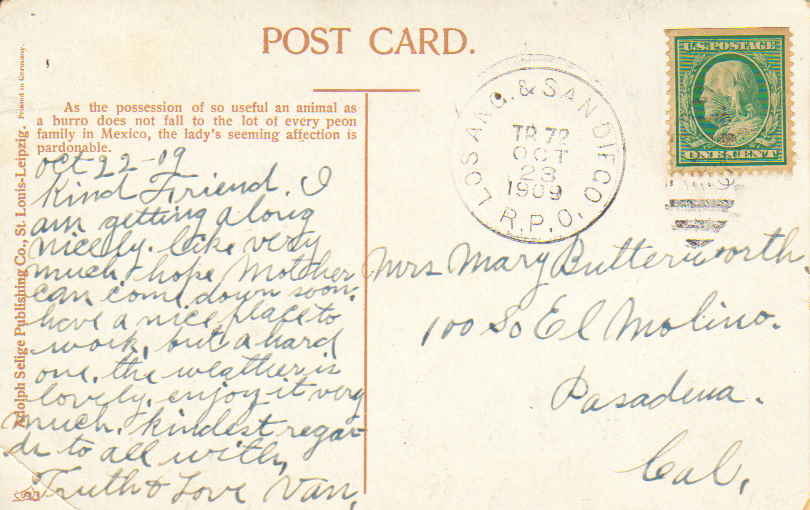 POST CARD.
As the possession of so useful an animal as
a burro does not fall to the lot of every peon
family in Mexico, the lady's seeming affection is
pardonable.
Adolph Selige Publishing Co., St. Louis-Leipzig. Printed in Germany.
Oct 22-09
Kind Friend. I
am getting along
nicely. like very
much. hope Mother
can come down soon.
have a nice place to
work, but a hard
one. the weather is
lovely. enjoy it very
much. kindest regar-
ds to all with,
Truth & Love Van,
LOS ANG. & SAN DIEGO.
TR. 72
OCT
23
1909
R.P.O.
U.S. POSTAGE
ONE CENT
Mrs Mary Butterworth.
100 So El Molino.
Pasadena.
Cal,